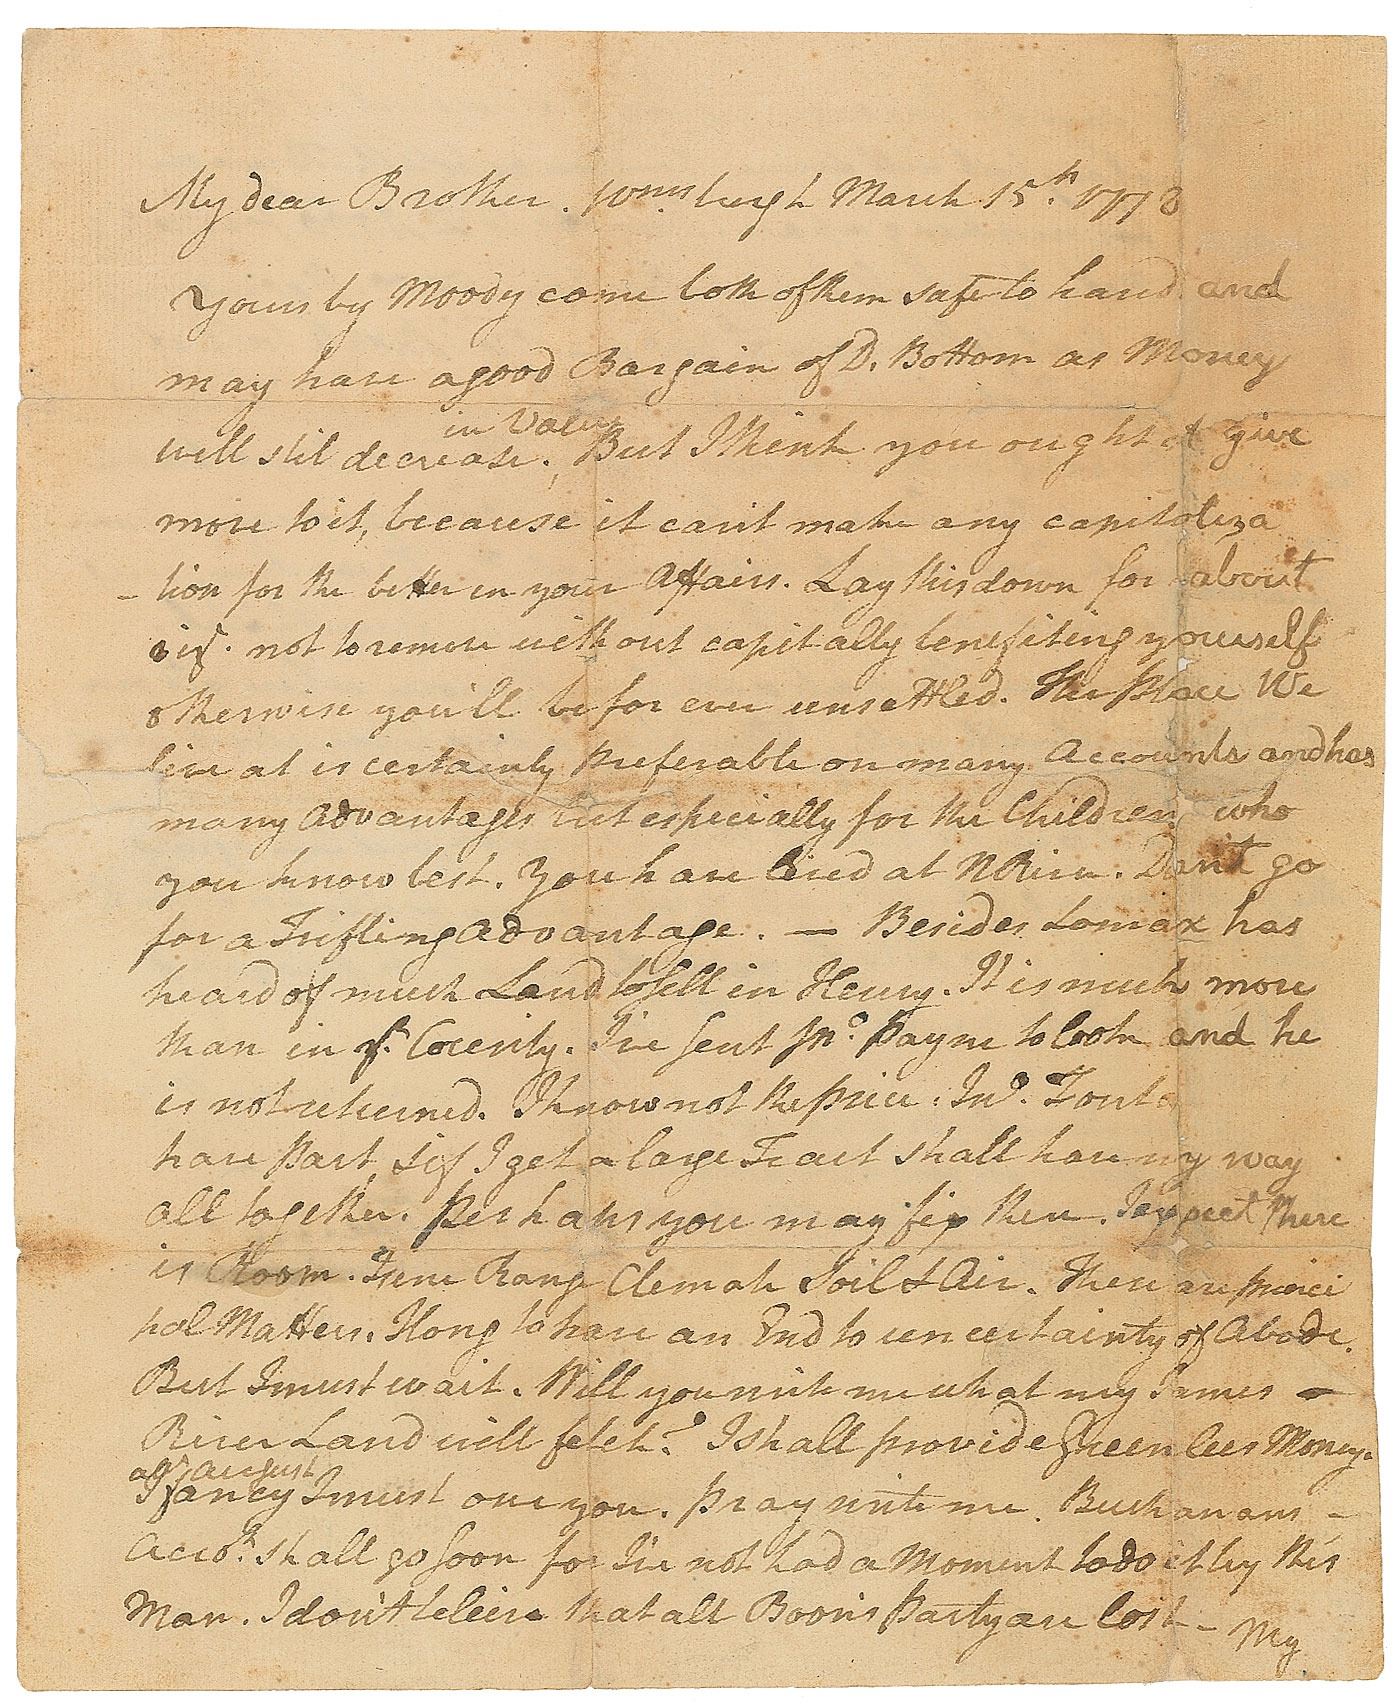 My dear Brother. Wmsburgh March 15th. 1778
Yours by Moody came both of them safe to hand and
may have a good Bargain of D. Bottom as Money
in Value
will stil decrease, But I think you ought give
more to it, because it can't make any capitaliza
- tion for the better in your Affairs. Lay this down for about
not to remove without capitally benefiting yourself
otherwise you'll be for ever unsettled. The Place We
live at is certainly preferable on many Accounts and has
many Advantages but especially for the Children, who
you know best. You have lived at NRiver. Don't go
for a Trifling advantage. — Besides Lomax has
heard of much Land to sell in Henry. It is much more
than in County. I've sent Jno. Payne to look and he
is not returned. I know not the price. Jno.
have Part, & if I get a large Tract shall have my way
all together. Perhaps you may fix there. I expect there
is Room. Range Climate Soil & Air. These are princi
pal Matters. I long to have an End to uncertainty of Abode.
But I must wait. Will you write me what my James -
River Land will fetch? I shall provide Greenlees Money.
agt August
I fancy I must owe you. Pray write me. Buchanans -
Accot. shall go soon for I've not had a Moment to do it by this
Man. I don't believe that all Boon's Party are lost - My